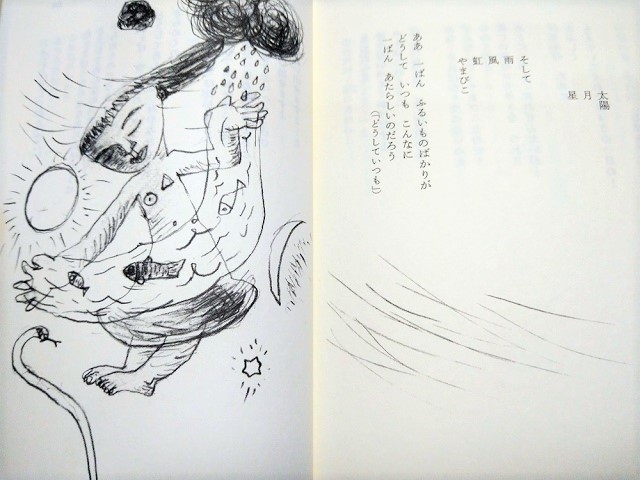 太陽
月
星
そして
雨
風
虹
やまびこ
ああ 一ばん ふるいものばかりが
どうして いつも こんなに
一ばん あたらしいのだろう
（「どうしていつも」）